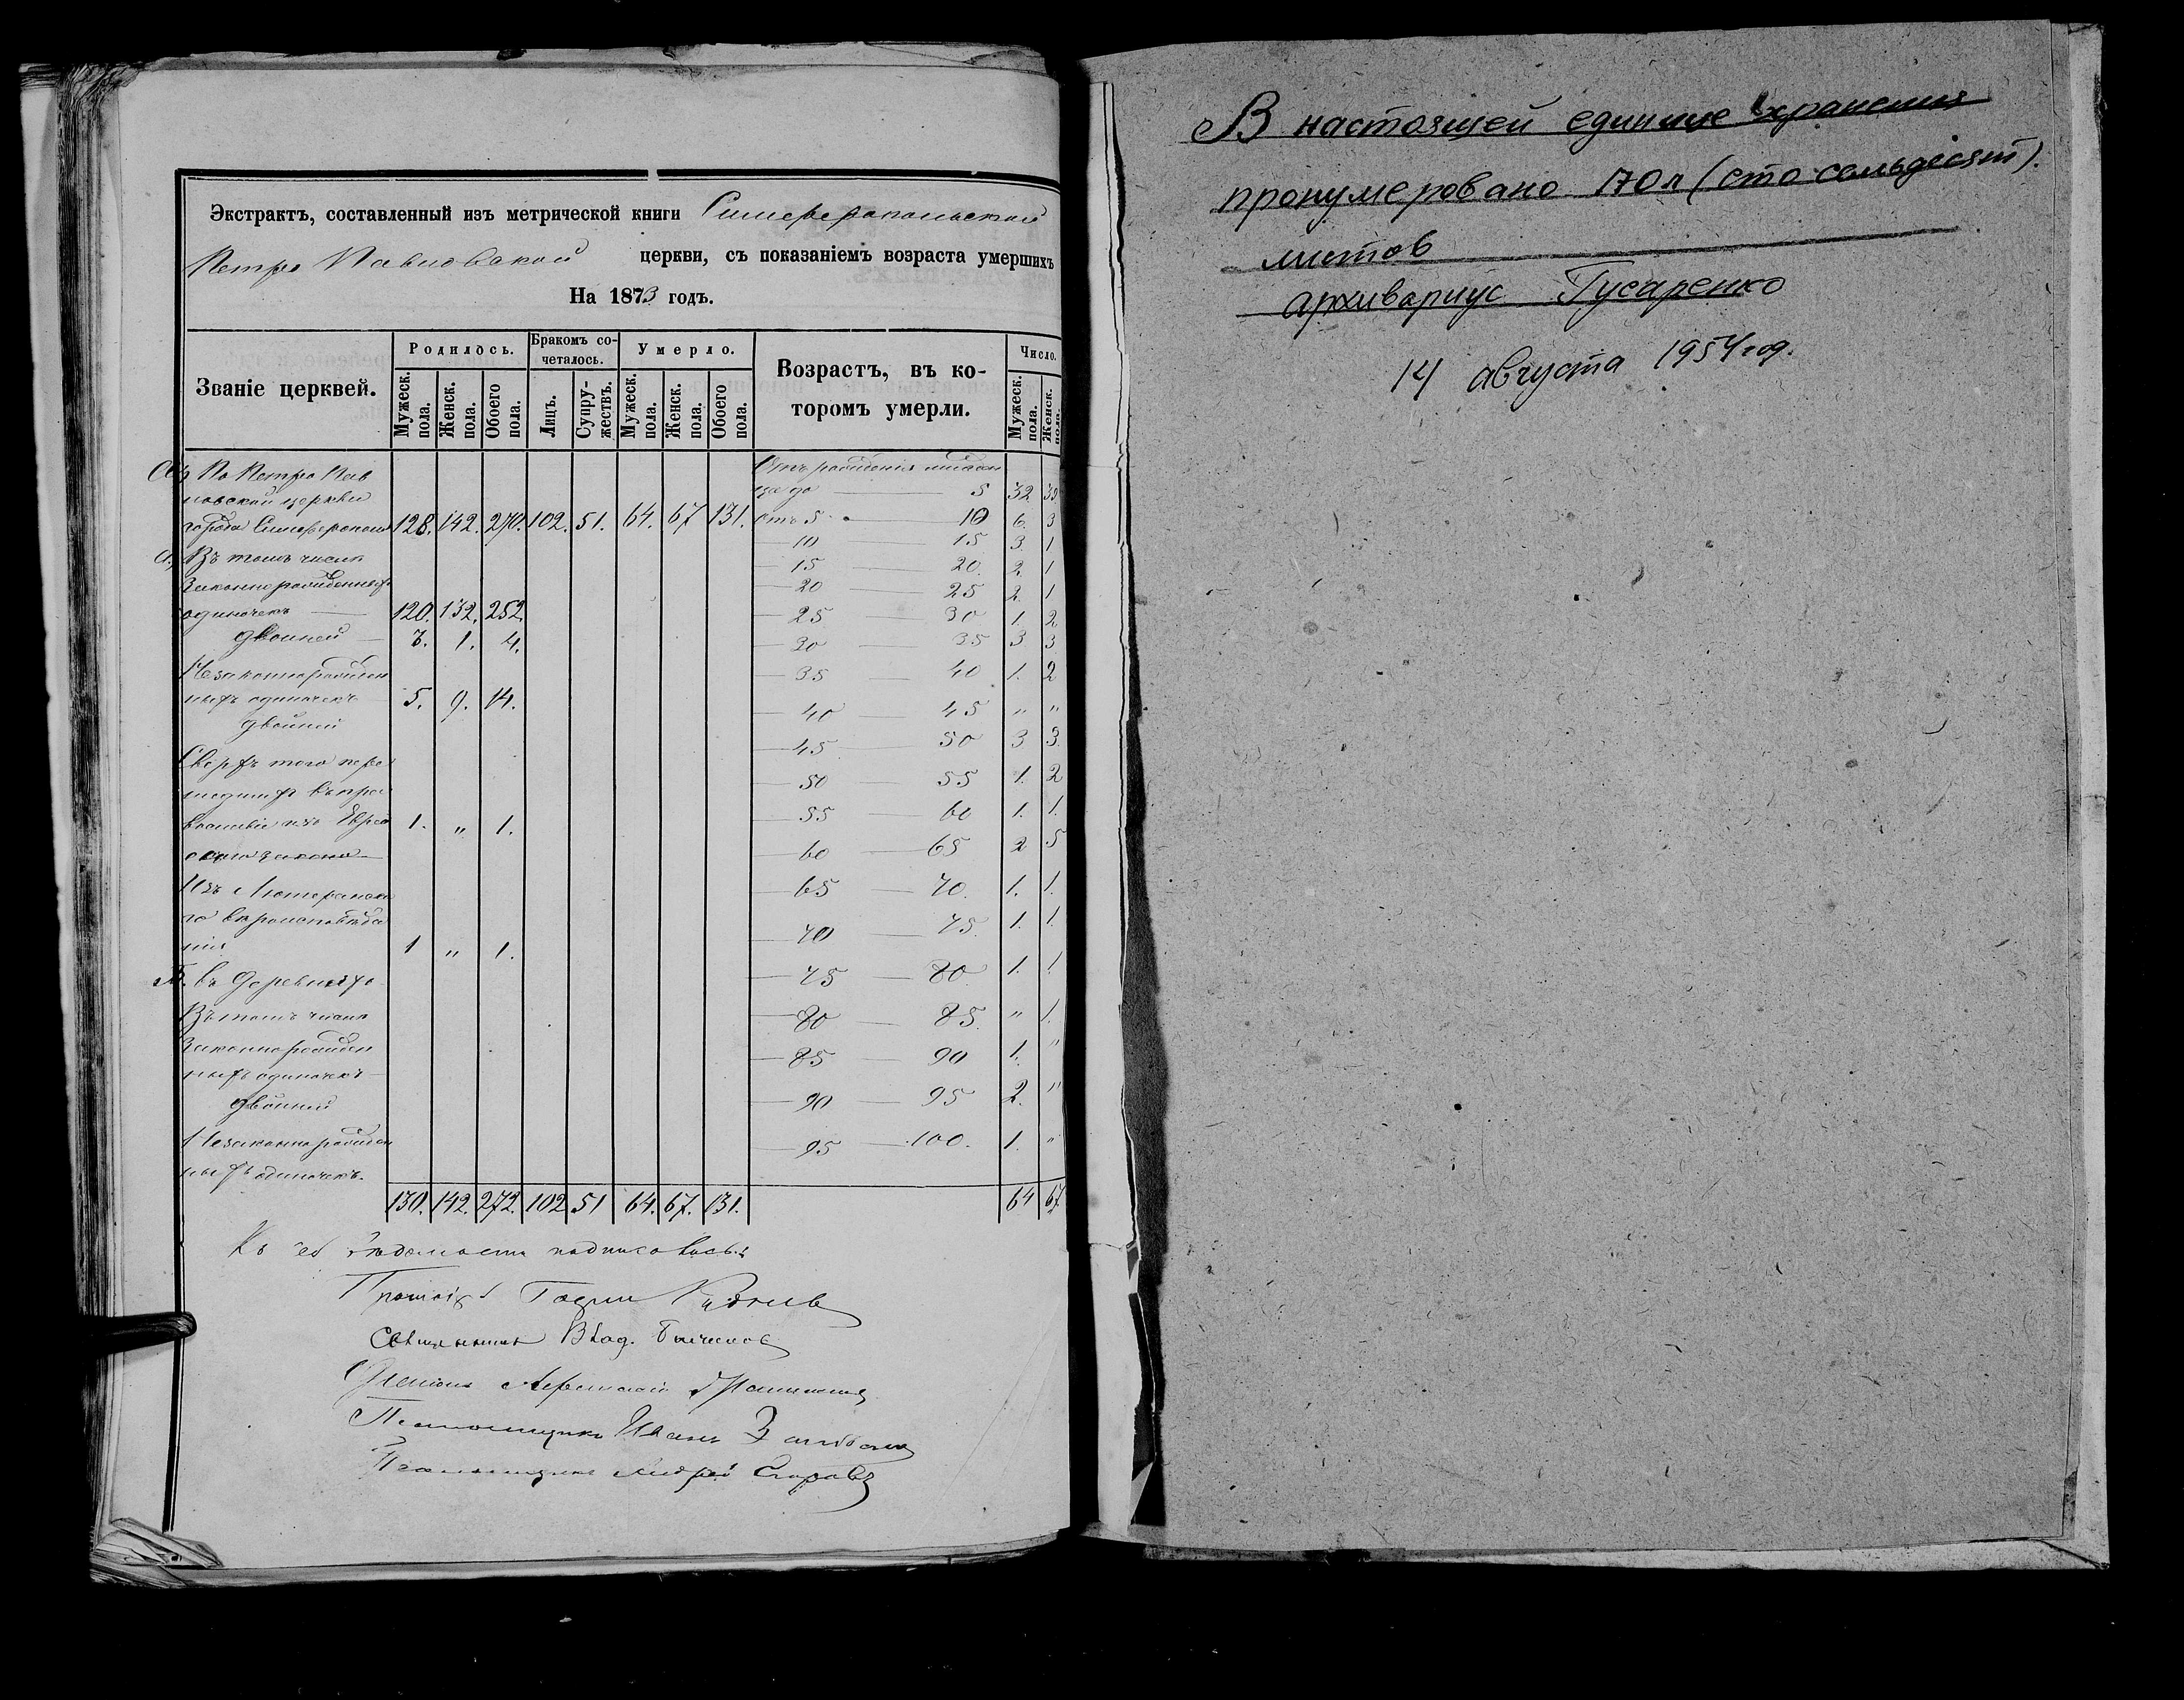 Экстрактъ, составленный изъ метрической книги Симферопольской
Петро Павловской церкви, съ показаніемъ возраста умершихъ
На 1873 годъ.
Званіе церквей.
Родилось.
Мужеск. пола.
Женск. пола.
Обоего пола.
Бракомъ сочеталось.
Лицъ.
Супружествъ.
Умерло.
Мужеск. пола.
Женск. пола.
Обоего пола.
Возрастъ, въ которомъ умерли.
Число.
Мужеск. пола.
Женск. пола.
По Петро Пав
ловской церкви
города Симферополя 128. 142. 270. 102. 51. 64. 67 131.
а, Въ томъ числѣ
Законнорожденныхъ
одиночекъ — 120. 132. 252.
двойней — 3. 1. 4.
Незаконнорожден
ныхъ одиночекъ 5. 9. 14.
двойней
Сверхъ того пере
шедшихъ въ пра
вославіе изъ Еврей 1. " 1.
скаго закона —
Изъ Лютеранска
го вѣроисповѣда
нія 1 " 1.
Б. въ деревняхъ
Въ томъ числѣ
Законнорожден
ныхъ одиночекъ
двойней
Незаконнорожден
ныхъ одиночекъ.
130. 142. 272. 102 51 64. 67. 131.
Отъ рожденія младен
ца до — 5 32 39
отъ 5 10 6. 3
— 10 15 3. 1
15 20. 2. 1
— 20 — 25 2. 1
— 25 — 30 1. 2
— 30 — 35 3 3
— 35 — 40 1. 2
— 40 — 45 " "
— 45 50 3 3.
— 50 — 55 1. 2
— 55 — 60 1. 1.
— 60 — 65 2 5
— 65 — 70. 1. 1.
— 70 — 75. 1. 1.
— 75 — 80. 1. 1
— 80 — 85. " 1.
— 85 — 90 1. "
— 90 — 95 2. "
— 95 — 100. 1. "
64 67
Къ сей вѣдомости подписались:
Влад.
Псаломщикъ Иванъ
Псаломщикъ Андрей
В настоящей единице хранения
пронумеровано 170 л (сто семьдесят).
листов
архивариус Гусаренко
14 августа 1954 год.